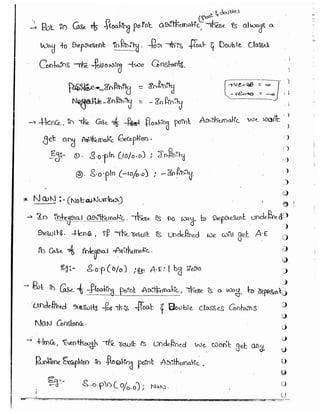 (float & double)
→ But in Case of floating point arithmetic, there is always a
way to Represent infinity. for this float & Double Classes
Contains the following two Constants.
Positive-Infinity = Infinity
Negative-Infinity = - Infinity
+ve-∞ = ∞
-ve-∞ = -∞
→ Hence, in the Case of floating point Arithmetic we won't
get any Arithmatic Exception.
Eg:- ①. S.o.pln (10/0.0) ; Infinity
②. S.o.pln (-10/0.0) ; -Infinity.
* NaN :- (Not a Number)
→ In integral arithmatic, There is no way to Represent undefined
Results. Hence, if the result is Undefined we will get A.E
in Case of integral Arithmatic.
Eg:- S.o.p (0/0) ; RE A.E : / by zero
→ But in Case of floating point Arithmatic, There is a way to represent
undefined results for this float & Double classes Contains
NaN Constant.
→ Hence, Eventhough the result is undefined we won't get any
Runtime Exception in floating point Arithmatic.
Eg:- S.o.pln (0/0.0) ; NaN.